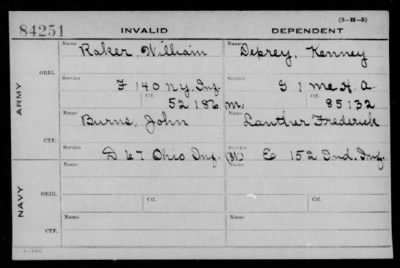 (3-H-5)
84251 INVALID DEPENDENT
Name Raker William Name Deprey, Kenney
ORIG.
Service F 140 N.Y. Inf. Service G 1 Me. H. A.
Ctf. 52186 Ctf. 85132
ARMY
Name Burns, John Name M. Lanther Frederick
CTF.
Service D 67 Ohio Inf. (W) Service E 152 Ind. Inf.
Name Name
ORIG.
Service Ctf. Service Ctf.
NAVY
Name Name
CTF.
Service Service